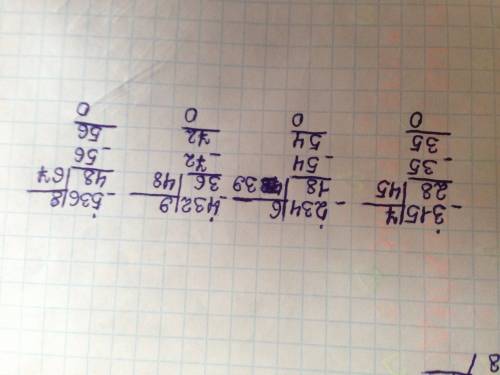 - 315|7
28|45
- 35
35
0
- 234|6
18|39
- 54
54
0
- 432|9
36|48
- 72
72
0
- 536|8
48|67
- 56
56
0